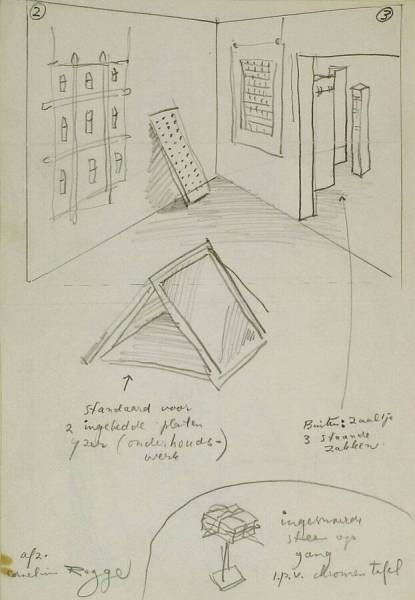 2
3
standaard voor
2 ingebedde platen
yzer (onderhouds-
werk)
Buiten: zaaltje
3 staande
zakken.
ingesnoerde
steen op
gang
i.p.v. chromen tafel
afz.
Cornelius Rogge